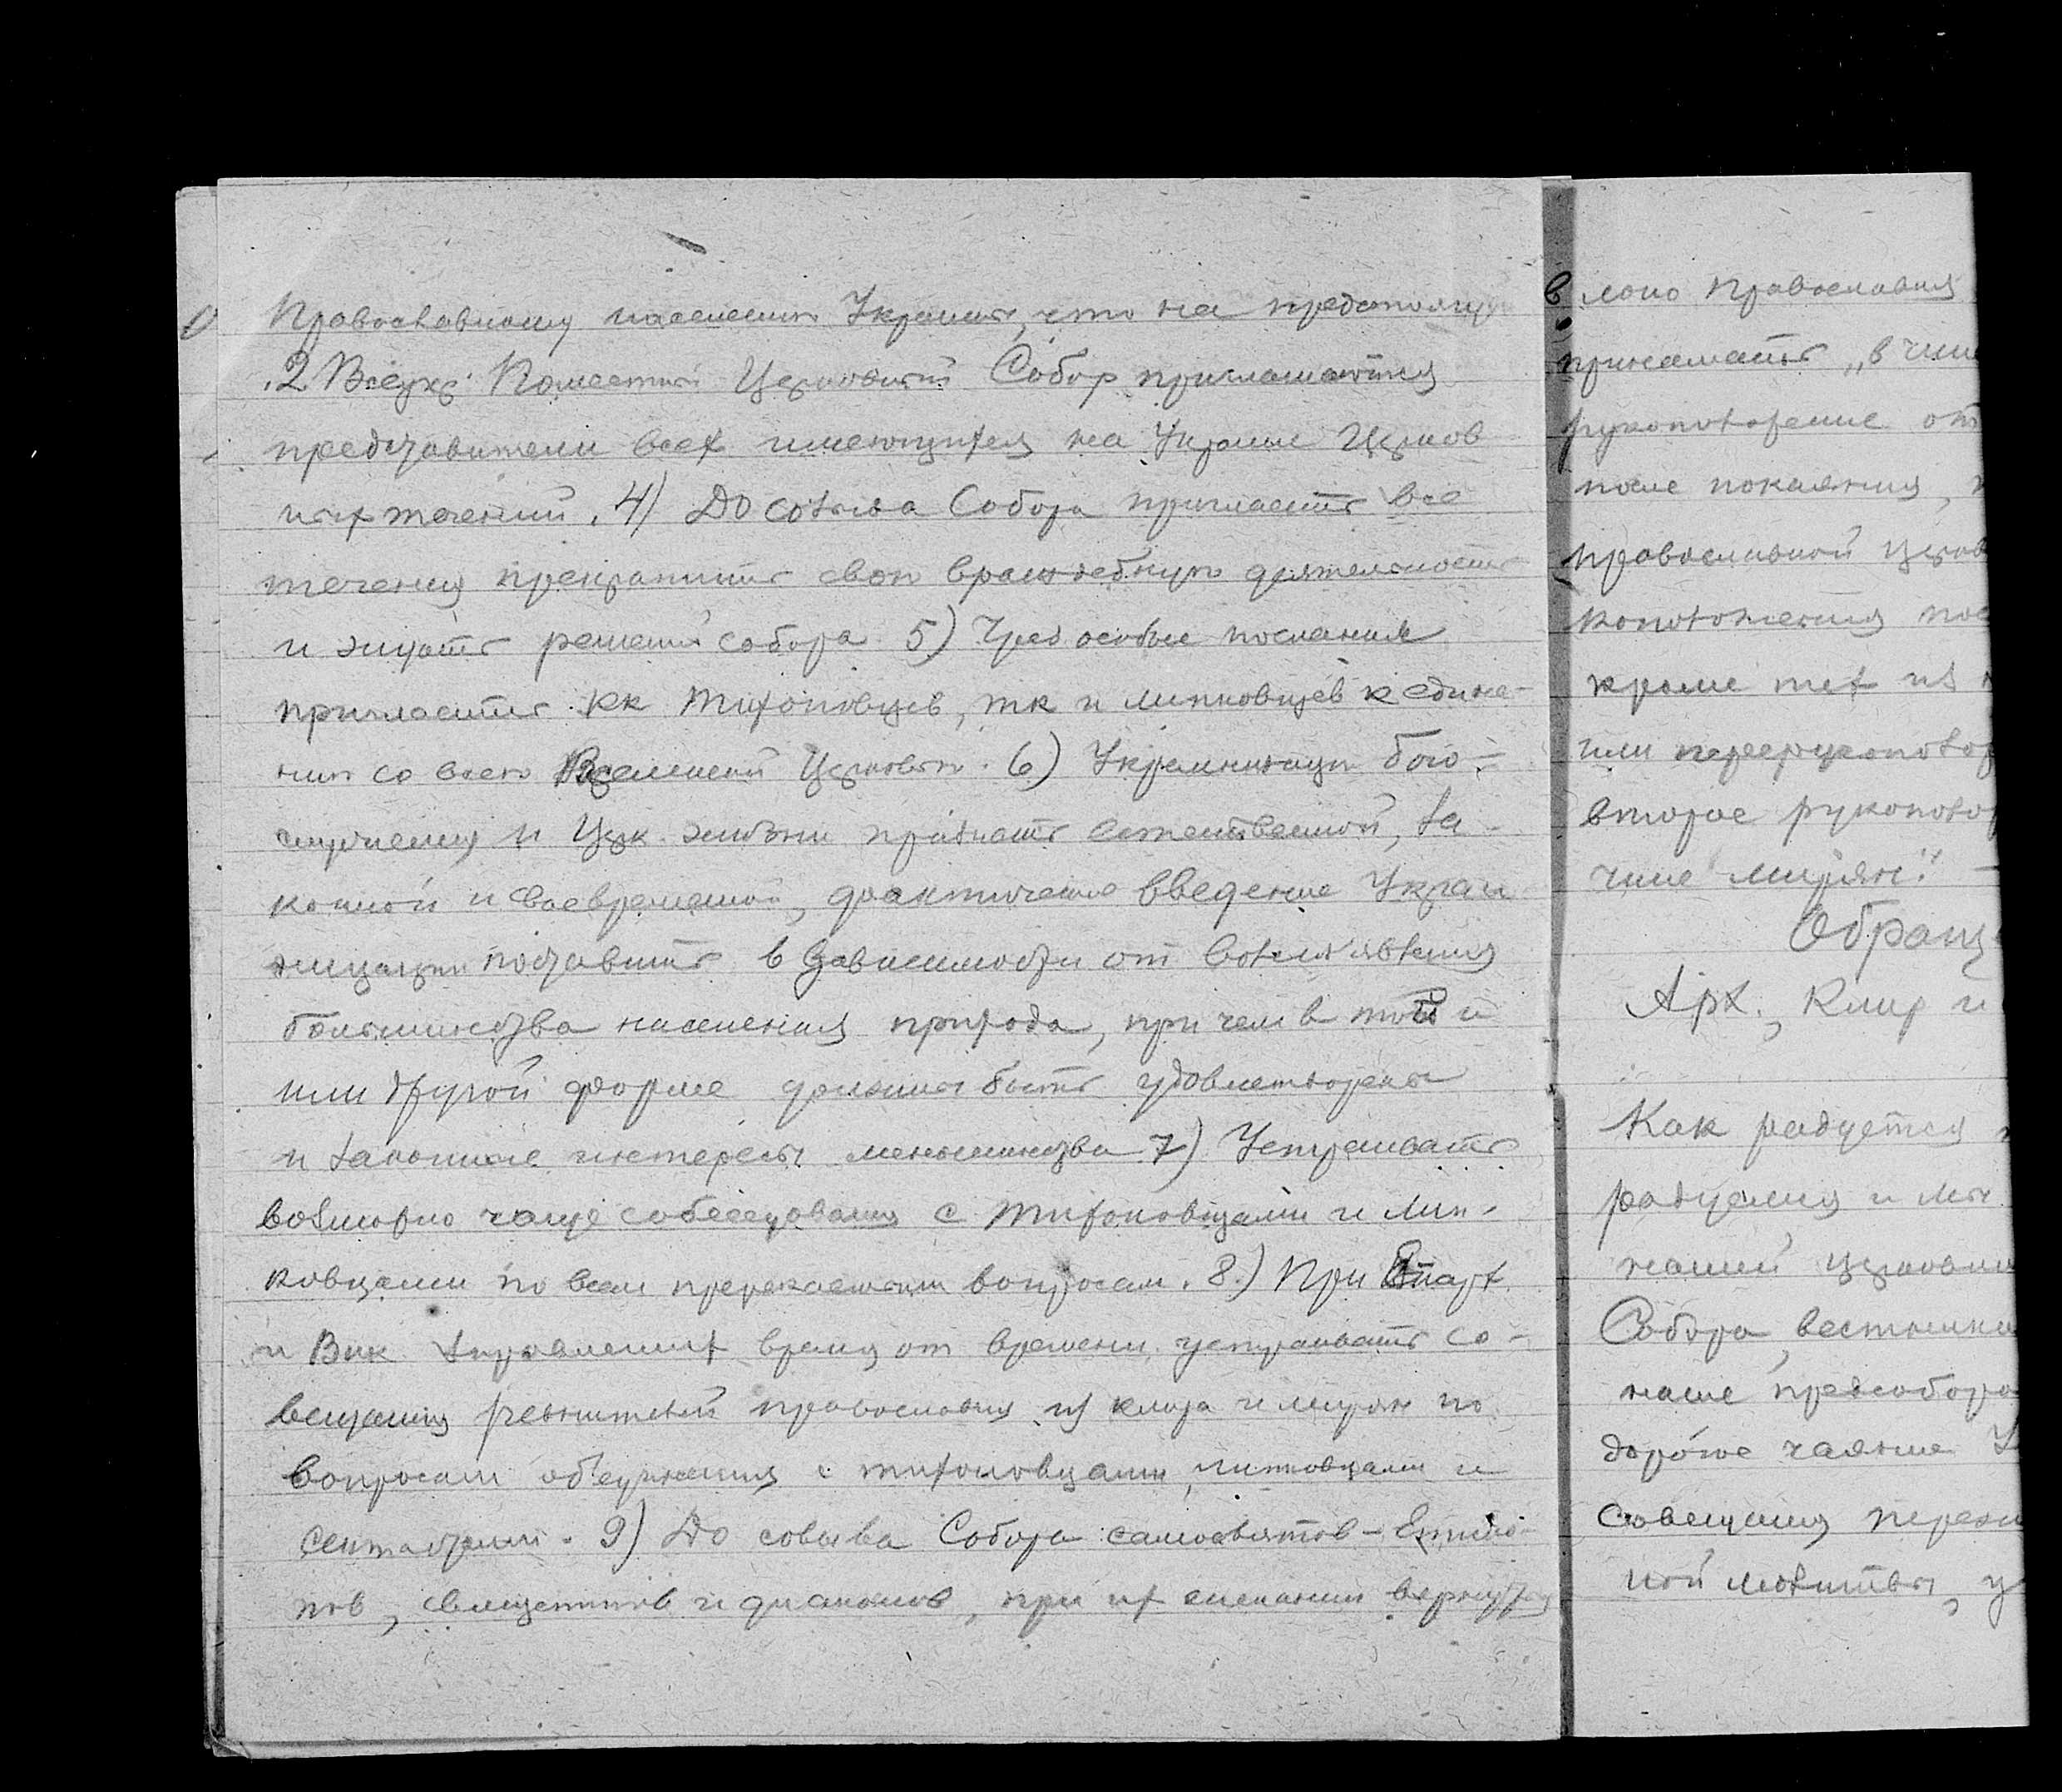 Православному населению Украины, что на предстоящ
2 Всеукр. Поместный Церковный Собор приглашаются
представители всех имеющихся на Украине Церков
ных течений. 4) До созыва Собора пригласить все
течения прекратить свою враждебную деятельность
и ждать решений собора 5) Чрез особые послания
пригласить кк тихоновцев, тк и липковцев к едине-
нию со всею Вселенской Церковью. 6) Украинизацию бого-
служения и Церк. жизни признать естественной, за-
конной и своевременной, фактическое введение Украи
низации поставить в зависимости от волеизъявления
большинства населения прихода, при чем в той и
или другой форме должны быть удовлетворены
и законные интересы меньшинства 7) Устраивать
возможно чаще собеседования с Тихоновцами и Лип-
ковцами по всем пререкаемым вопросам. 8) При Епарх.
и Вик. Управлениях время от времени устраивать со-
вещания ревнителей православия из клира и мирян по
вопросам объединения с тихоновцами, липковцами и
сектантами. 9) До созыва Собора самосвятов - Еписко-
пов, священников и диаконов, при их желании вернуться
в лоно Православия
принимать „в чине
рукоположение от
после покаяния,
православной Церкв
коположения пос
кроме тех из
или перерукополож
второе рукополо
чине мирян." —
Обращ
Арх., Клир и
Как радуется
радуемся и мы
нашей Церковн
Собора, вестник
наше предсобор
дорогое чаяние У
Совещания переж
ной молитвы, у